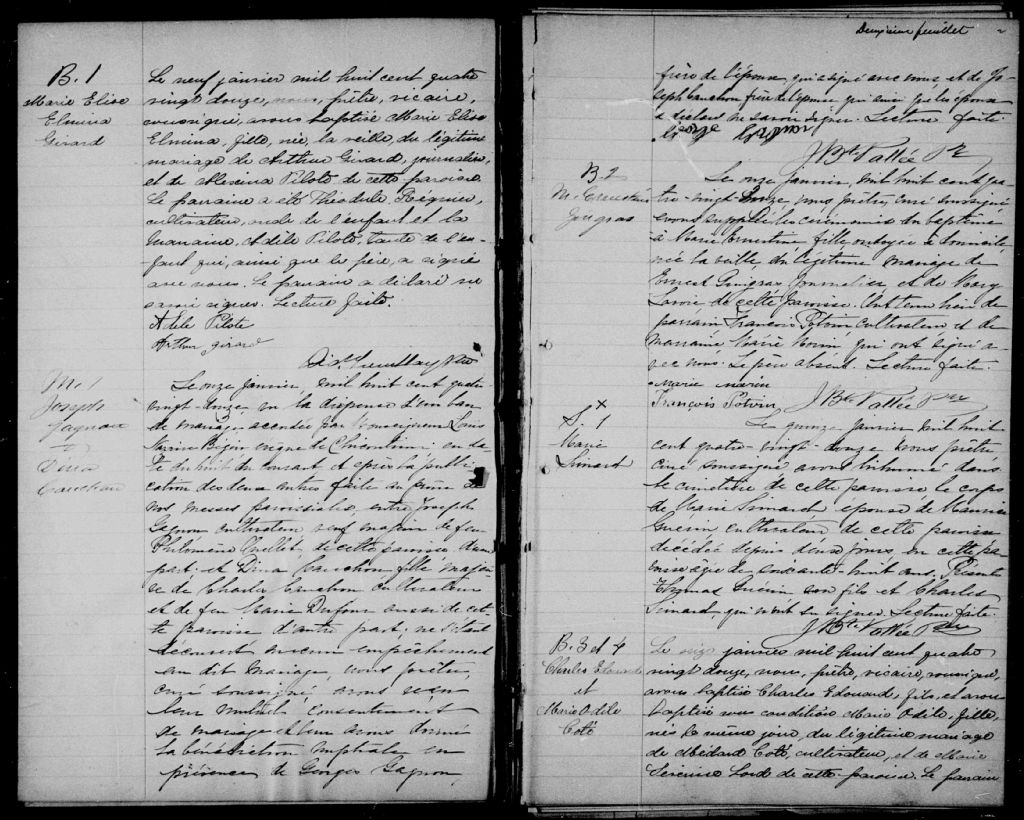 B. 1
Marie Elise
Elmina
Girard
Le neuf janvier mil huit cent quatre
vingt douze, nous, prêtre, vicaire,
soussigné, avons baptisé Marie Elise
Elmina, fille, née, la veille, du légitime
mariage de Arthur Girard, journalier,
et de Pilote de cette paroisse.
Le parrain a été Théodule
cultivateur, oncle de l'enfant et la
marraine, Adèle Pilote, tante de l'en-
fant qui, ainsi que le père, a signé
avec nous. Le parrain a déclaré ne
savoir signer. Lecture faite.
Adèle Pilote
Arthur Girard
Ptre
M. 1
Joseph
Gagnon
&
Dina
Cauchon
Le onze janvier, mil huit cent quatre
vingt-douze vu la dispense d'un ban
de mariage accordée par Monseigneur Louis
Nazaire Bégin évêque de Chicoutimi en da-
te du huit du courant et après la publi-
cation des deux autres faite au prône de
nos messes paroissiales, entre Joseph
Gagnon cultivateur veuf majeur de feu
Philomène Ouellet, de cette paroisse d'une
part et Dina Cauchon fille majeu-
re de Charles Cauchon cultivateur
et de feu Marie Dufour aussi de cet-
te paroisse d'autre part; ne s'étant
découvert aucun empêchement
au dit mariage, nous prêtre,
curé soussigné avons reçu
leur mutuel consentement
de mariage et leur avons donné
la bénédiction nuptiale en
présence de Georges Gagnon
Deuxième feuillet
frère de l'époux, qui a signé avec nous et de Jo-
seph Cauchon frère de l'épouse qui ainsi que les époux
a déclaré ne savoir signer. Lecture faite.
George Gagnon
J Bte Vallée Ptre
B. 2
M. Ernestine
Gingras
Le onze janvier, mil huit cent qua-
tre-vingt-douze, nous prêtre, curé soussigné
avons suppléé les cérémonies du baptême
à Marie Ernestine fille ondoyée à domicile
née la veille du légitime mariage de
Ernest Gingras journalier et de Mary
Lavoie de cette paroisse. Ont tenu lieu de
parrain François Potvin cultivateur et de
marraine Marie Morin qui ont signé a-
vec nous. Le père absent. Lecture faite.
Marie Morin
François Potvin J Bte Vallée Ptre
S. 1
Marie
Simard
Le quinze janvier mil huit
cent quatre-vingt-douze nous prêtre
curé soussigné avons inhumé dans
le cimetière de cette paroisse le corps
de Marie Simard épouse de Maurice
Guérin cultivateur de cette paroisse
décédée depuis deux jours en cette pa-
roisse âgée de soixante-huit ans. Présents
Thomas Guérin son fils et Charles
Simard, qui n'ont su signer. Lecture faite.
J Bte Vallée Ptre
B. 3 et 4
Charles Edouard
et
Marie Odile
Coté
Le seize janvier mil huit cent quatre
vingt douze, nous, prêtre, vicaire, soussigné,
avons baptisé Charles Edouard, fils, et avons
baptisé sous condition Marie Odile, fille,
nés le même jour, du légitime mariage
de Médard Coté, cultivateur, et de Marie
de cette paroisse. Le parrain